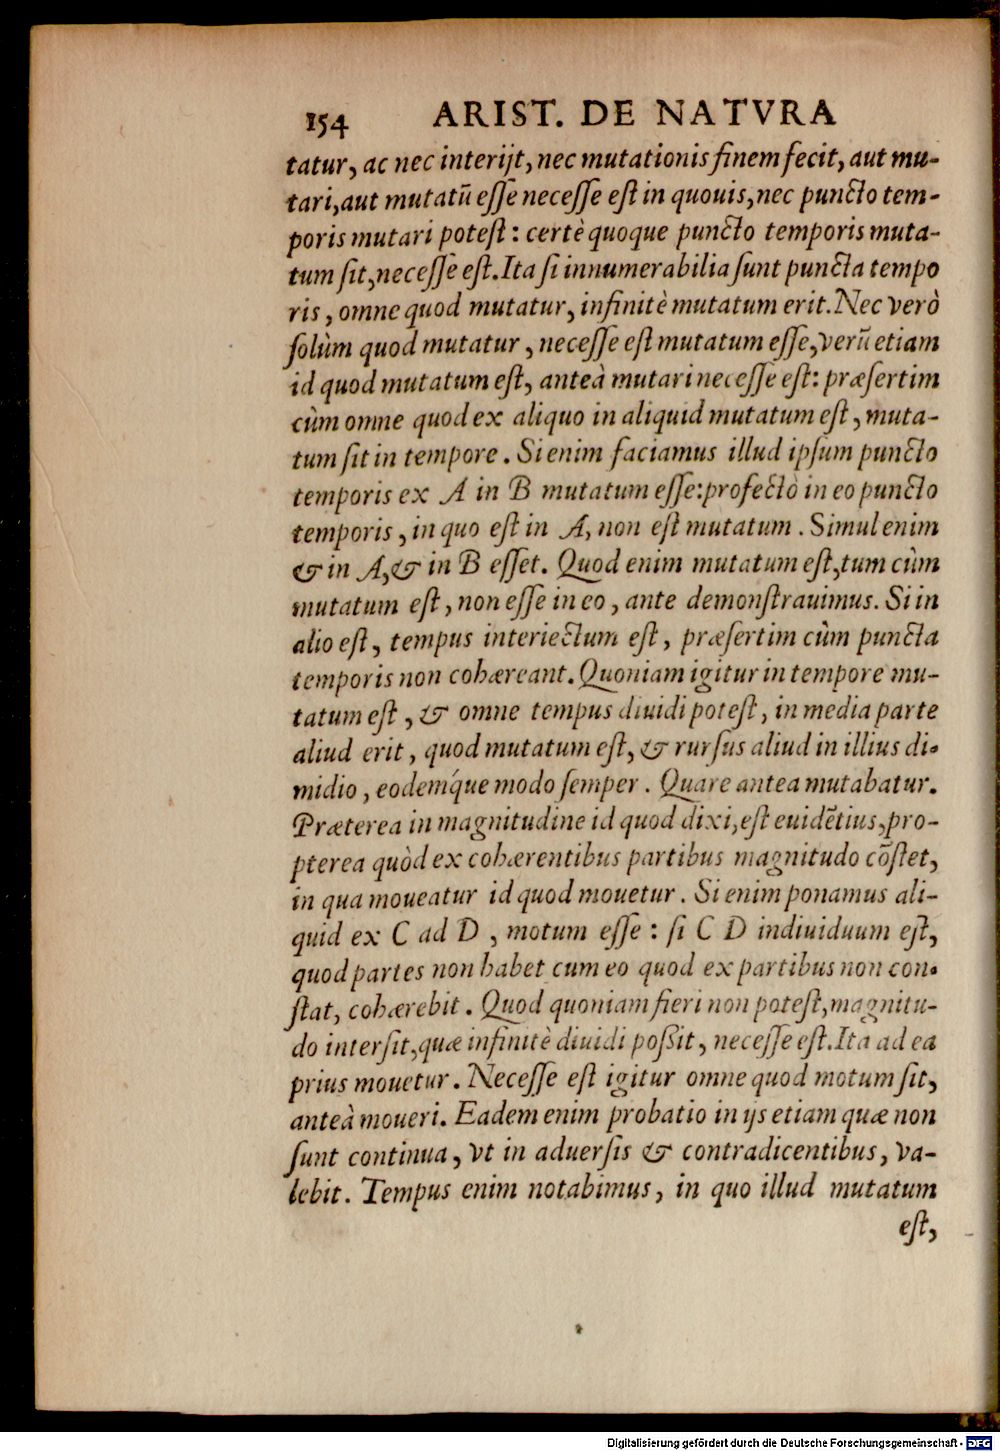 154 ARIST. DE NATVRA
tatur, ac nec interijt, nec mutationis finem fecit, aut mu-
tari, aut mutatū eſſe neceſſe eſt in quouis, nec puncto tem-
poris mutari poteſt : certè quoque puncto temporis muta-
tum ſit, neceſſe eſt. Ita ſi innumerabilia ſunt puncta tempo
ris, omne quod mutatur, infinitè mutatum erit. Nec verò
ſolùm quod mutatur, neceſſe eſt mutatum eſſe, verū etiam
id quod mutatum eſt, anteà mutari neceſſe eſt: præſertim
cùm omne quod ex aliquo in aliquid mutatum eſt, muta-
tum ſit in tempore. Si enim faciamus illud ipſum puncto
temporis ex A in B mutatum eſſe: profectò in eo puncto
temporis, in quo eſt in A, non eſt mutatum. Simul enim
& in A, & in B eſſet. Quod enim mutatum eſt, tum cùm
mutatum eſt, non eſſe in eo, ante demonſtrauimus. Si in
alio eſt, tempus interiectum eſt, præſertim cùm puncta
temporis non cohæreant. Quoniam igitur in tempore mu-
tatum eſt, & omne tempus diuidi poteſt, in media parte
aliud erit, quod mutatum eſt, & rurſus aliud in illius di-
midio, eodemq́ue modo ſemper. Quare antea mutabatur.
Præterea in magnitudine id quod dixi, eſt euidētius, pro-
pterea quòd ex cohærentibus partibus magnitudo cōſtet,
in qua moueatur id quod mouetur. Si enim ponamus ali-
quid ex C ad D, motum eſſe : ſi C D indiuiduum eſt,
quod partes non habet cum eo quod ex partibus non con-
ſtat, cohærebit. Quod quoniam fieri non poteſt, magnitu-
do interſit, quæ infinitè diuidi poſsit, neceſſe eſt. Ita ad ea
prius mouetur. Neceſſe eſt igitur omne quod motum ſit,
anteà moueri. Eadem enim probatio in ijs etiam quæ non
ſunt continua, vt in aduerſis & contradicentibus, va-
lebit. Tempus enim notabimus, in quo illud mutatum
eſt,
Digitalisierung gefördert durch die Deutsche Forschungsgemeinschaft - DFG